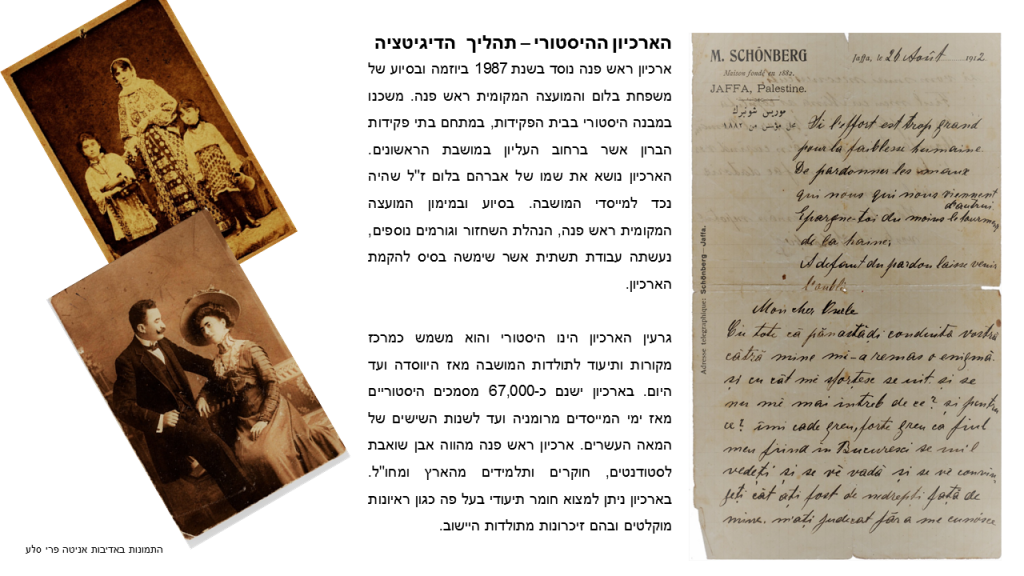 הארכיון ההיסטורי – תהליך הדיגיטציה
ארכיון ראש פנה נוסד בשנת 1987 ביוזמה ובסיוע של
משפחת בלום והמועצה המקומית ראש פנה. משכנו
במבנה היסטורי בבית הפקידות, במתחם בתי פקידות
הברון אשר ברחוב העליון במושבת הראשונים.
הארכיון נושא את שמו של אברהם בלום ז"ל שהיה
נכד למייסדי המושבה. בסיוע ובמימון המועצה
המקומית ראש פנה, הנהלת השחזור וגורמים נוספים,
נעשתה עבודת תשתית אשר שימשה בסיס להקמת
הארכיון.
גרעין הארכיון הינו היסטורי והוא משמש כמרכז
מקורות ותיעוד לתולדות המושבה מאז היווסדה ועד
היום. בארכיון ישנם כ-67,000 מסמכים היסטוריים
מאז ימי המייסדים מרומניה ועד לשנות השישים של
המאה העשרים. ארכיון ראש פנה מהווה אבן שואבת
לסטודנטים, חוקרים ותלמידים מהארץ ומחו"ל.
בארכיון ניתן למצוא חומר תיעודי בעל פה כגון ראיונות
מוקלטים ובהם זיכרונות מתולדות היישוב.
M. SCHÖNBERG
Maison fondé en 1882.
JAFFA, Palestine.
Jaffa, le 26 Août 1912
Si l'effort est trop grand
pour la faiblesse humaine
De pardonner les maux
qui nous qui nous viennent
d'autrui
Epargne-toi du moins le tourment
de la haine;
A défaut du pardon laisse venir
l'oubli
Adresse telegraphique: Schönberg—Jaffa.
Mon cher
Cu tote că până astădi conduita vostră
cătră mine mi-a remas o enigmă
și cu cât mĕ sforțese se uit. și se
nu mĕ mai intreb de ce? și pentru
ce? îmi cade greu, forte greu ca fiul
meu fiind in Bucuresci se nu'l
vedeți și se vĕ vadă și se vĕ
cât ați fost de nedrepți față de
mine. m'ați judecat făra a me cunósce
התמונות באדיבות אניטה פרי סלע